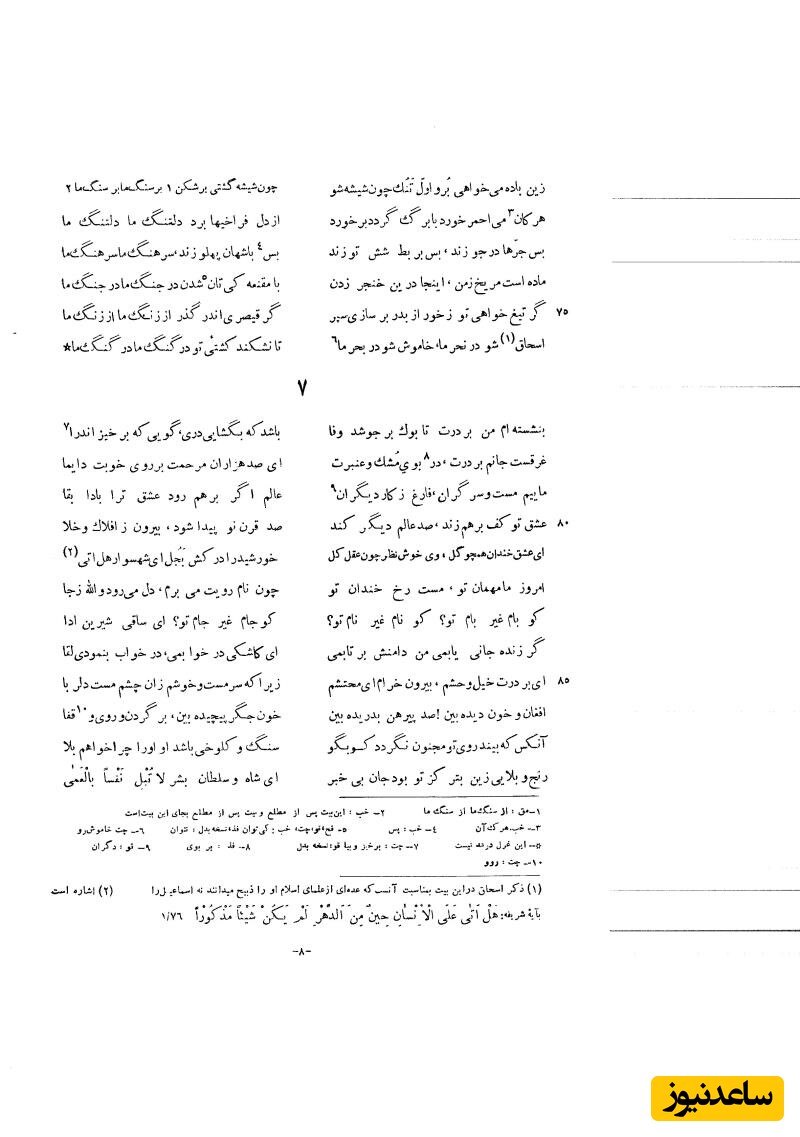 زین باده می‌خواهی بُرو اوّل تَنُک چون شیشه شو چون شیشه گشتی برشکن ۱ بر سنگ ما بر سنگ ما ۲
هرکان۳ می احمر خورد با برگ گردد بر خورد از دل فراخیها برد دلتنگ ما دلتنگ ما
بس جرّها در جو زند، بس بربط شش تو زند بس۴ باشهان پهلو زند، سرهنگ ما سرهنگ ما
ماده است مریخ زمن، اینجا درین خنجر زدن با مقنعه کی تان۵ شدن در جنگ ما در جنگ ما
۷۵ گر تیغ خواهی تو ز خور از بدر بر سازی سپر گر قیصری اندر گذر از زنگ ما از زنگ ما
اسحاق(۱) شو در نحر ما، خاموش شو در بحر ما۶ تا نشکند کشتی تو در گنگ ما در گنگ ما*
۷
بنشسته‌ام من بر درت تا بوک بر جوشد وفا باشد که بگشایی دری، گویی که بر خیز اندرا۷
غرقست جانم بر درت، در۸ بوی مُشک و عنبرت ای صد هزاران مرحمت بر روی خوبت دایما
ماییم مست و سرگران، فارغ ز کار دیگران۹ عالم اگر برهم رود عشق ترا بادا بقا
۸۰ عشق تو کف برهم زند، صد عالم دیگر کند صد قرن نو پیدا شود، بیرون ز افلاک و خلا
ای عشق خندان همچو گل، وی خوش نظر چون عقل کل خورشید را درکش بجُل ای شهسوار هل اتی(۲)
امروز ما مهمان تو، مست رخ خندان تو چون نام رویت می برم، دل می‌رود والله زجا
کو بام غیر بام تو؟ کو نام غیر نام تو؟ کو جام غیر جام تو؟ ای ساقی شیرین ادا
گر زنده جانی یابمی من دامنش بر تابمی ای کاشکی در خوابمی، در خواب بنمودی لقا
۸۵ ای بر درت خیل و حشم، بیرون خرام ای محتشم زیرا که سرمست و خوشم زان چشم مست دلربا
افغان و خون دیده بین! صد پیرهن بدریده بین خون جگر پیچیده بین، بر گردن و روی و۱۰ قفا
آنکس که بیند روی تو مجنون نگردد کو بگو سنگ و کلوخی باشد او او را چرا خواهم بلا
رنج و بلایی زین بتر کز تو بود جان بی خبر ای شاه و سلطان بشر لا تُبْلِ نَفْساً بِالْعَمٰی
۱ــ مق : از سنگ ما از سنگ ما ۲ــ خب : این بیت پس از مطلع و بیت پس از مطلع بجای این بیت است
۳ــ خب، هرک آن ۴ــ خب : پس ۵ــ قح، قو، چت، خب : کی توان فذ، نسخه بدل : نتوان ۶ــ چت خاموش رو
*ــ این غزل در قد نیست ۷ــ چت : برخیز و بیا قو، نسخه بدل ۸ــ فذ : بر بوی ۹ــ قو : دگران
۱۰ــ چت : روو
(۱) ذکر اسحاق در این بیت بمناسبت آنست که عده‌ای از علمای اسلام او را ذبیح میدانند نه اسماعیل را (۲) اشاره است
بآیهٔ شریفه: هَلْ اَتٰی عَلَی الْاِنْسانِ حِینٌ مِنَ الدَّهْرِ لَمْ یَکُنْ شَیْئاً مَذْکُوراً ۱/۷۶
-۸-
ساعدنیوز